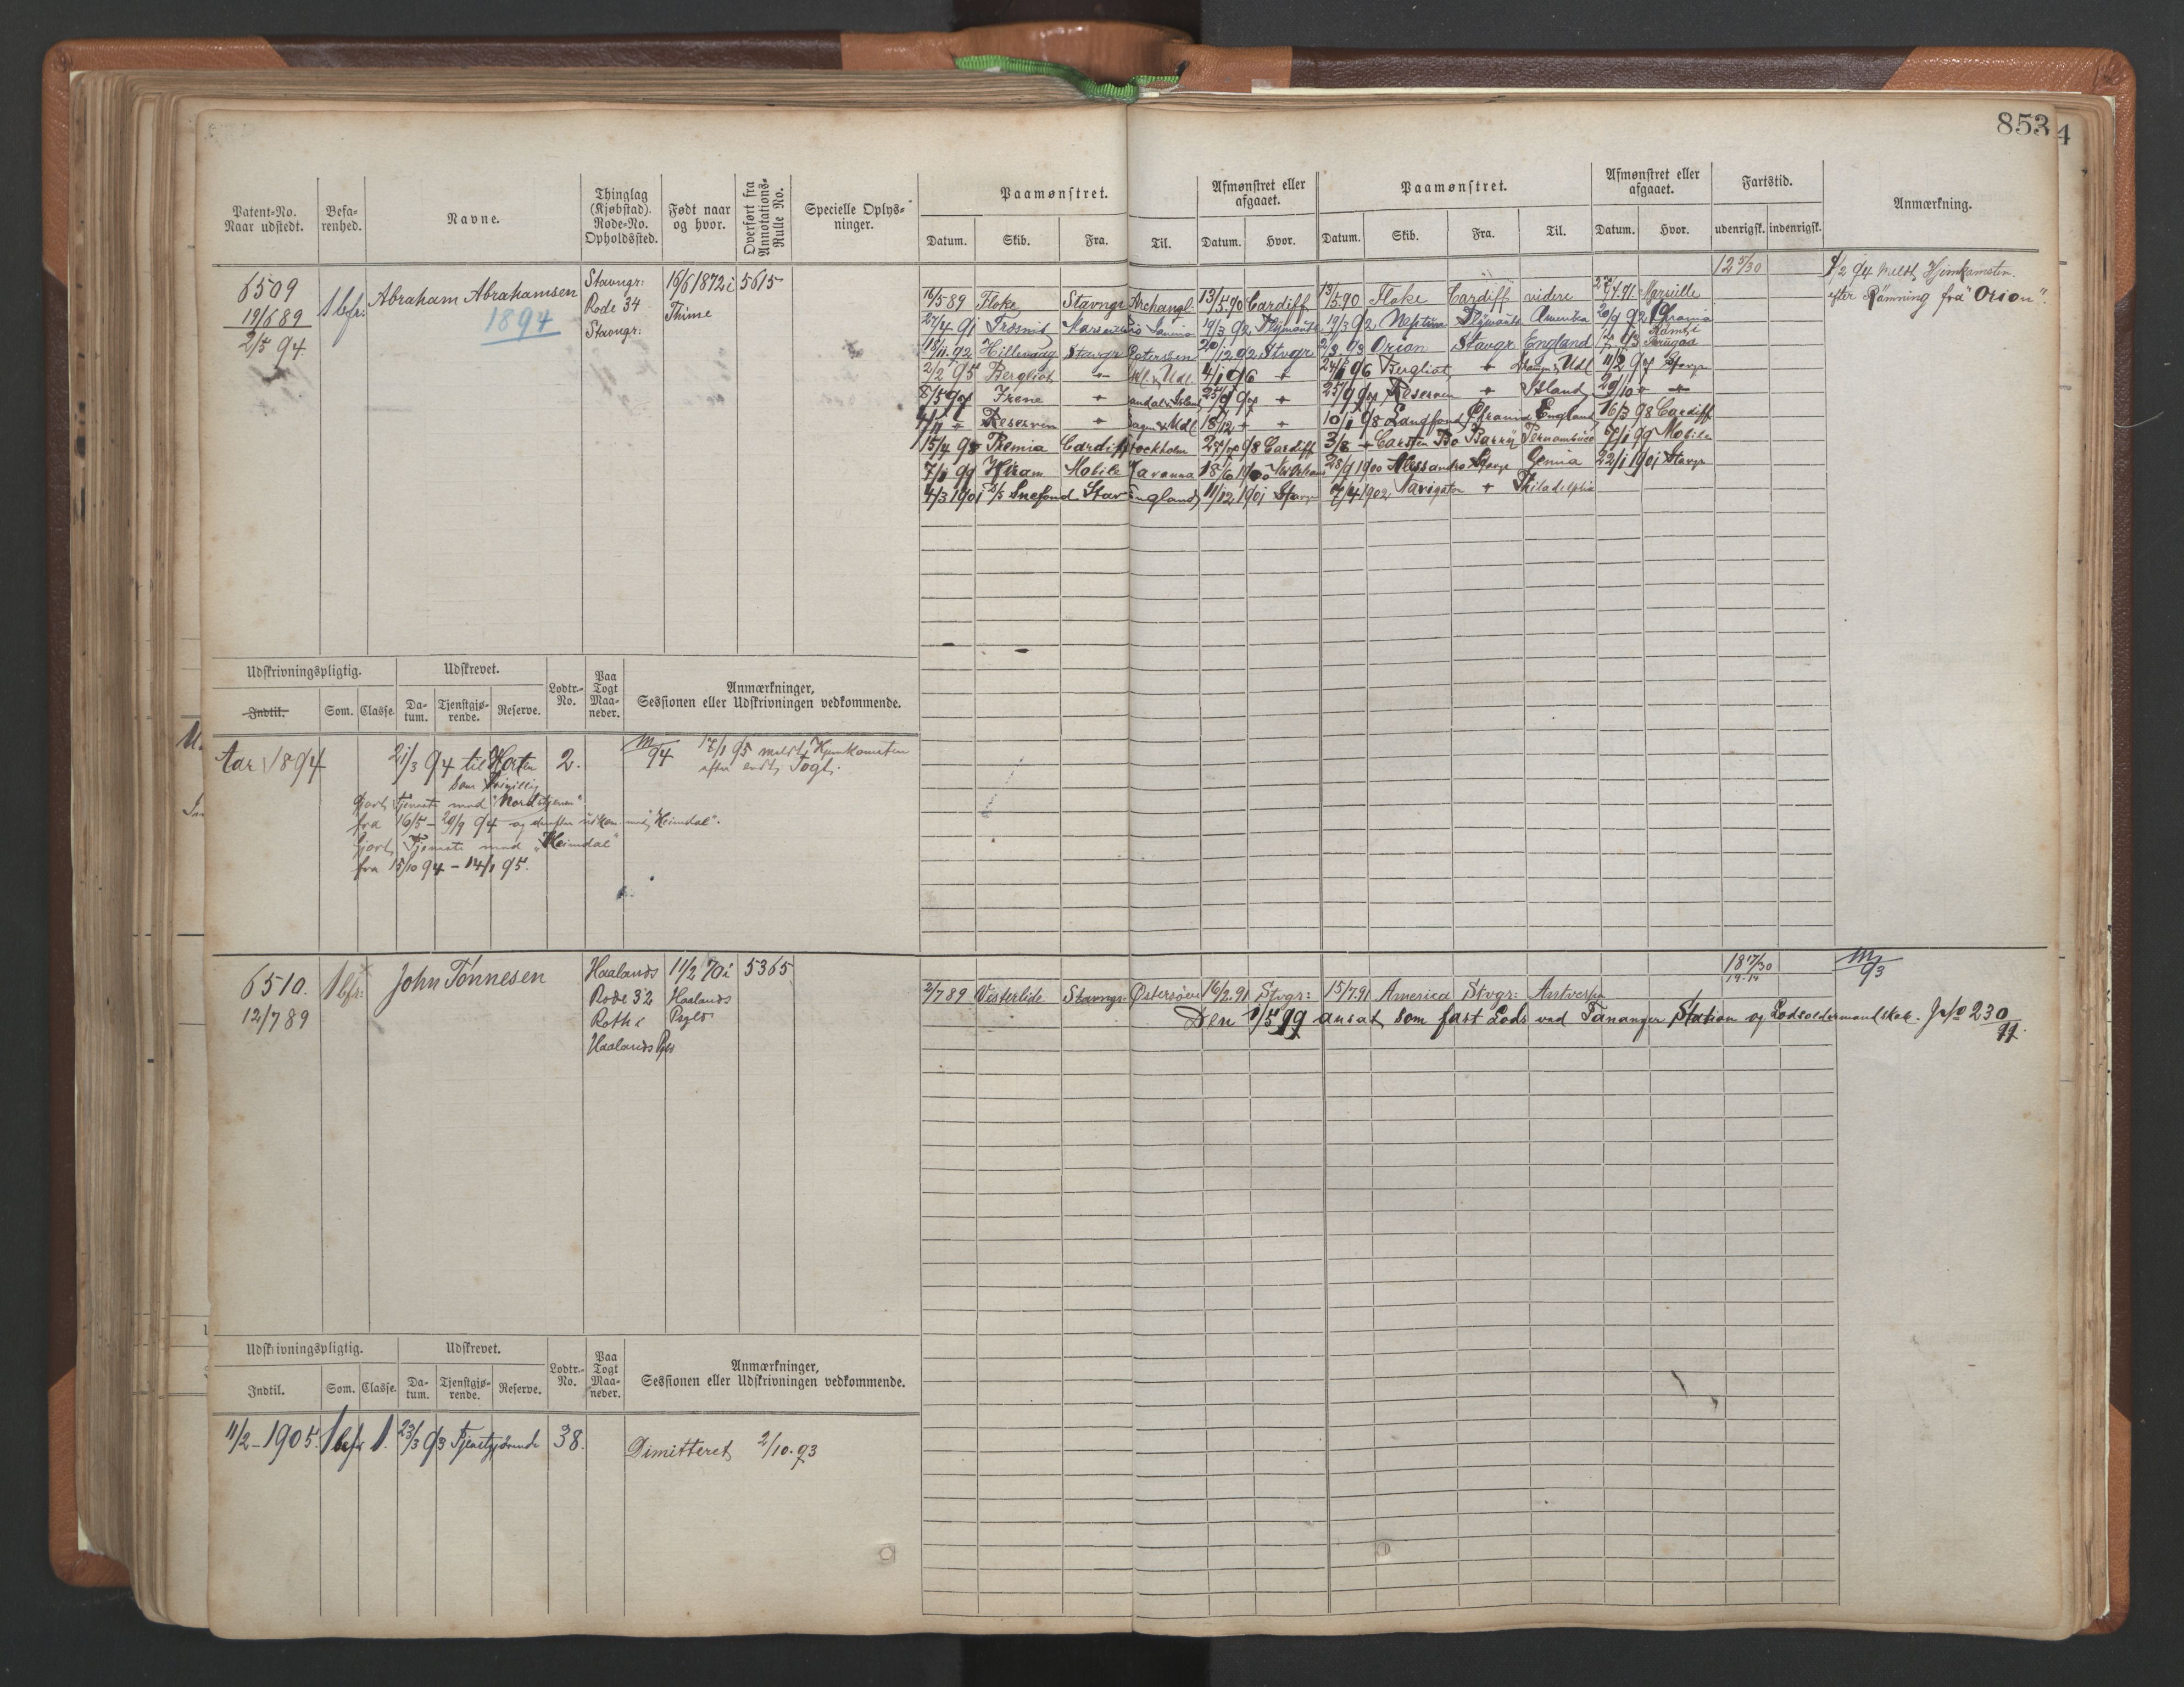 853
4
Patent-No. Naar udstedt.
Befarenhed.
Navne.
Thinglag (Kjøbstad). Rode-No. Opholdssted.
Født naar og hvor.
Overført fra Annotations-Rulle No.
Specielle Oplysninger.
Paamønstret.
Afmønstret eller afgaaet.
Paamønstret.
Afmønstret eller afgaaet.
Fartstid.
Anmærkning.
Datum. Skib. Fra. Til. Datum. Hvor. Datum. Skib. Fra. Til. Datum. Hvor. udenrigsk. indenrigsk.
6509
19/6 89
2/5 94.
1 bfr:
Abraham Abrahamsen
1894
Stavngr:
Rode 34
Stavngr:
16/6 1872 i
Thime
5615
12 5/30
1/2 94 meldt Hjemkomsten
efter Rømning fra "Orion".
16/5 89 Floke Stavngr Archangel 13/5.90 Cardiff 13/5 90 Floke Cardiff videre 27/4.91. Marseille
27/4 91 Marseille 19/3 92 Plymouth 19/3 92 Neptun Plymouth Amerika 20/9 92
11.92 Hillevaag Stavgr 20/12.92 Stvgr Orion Stavgr England
2/2 95 Bergliot Udl 4/1 96 24/1 96 Bergliot Udl 11/2 97 Stavgr
8/5 97 Irene Island 25/9 97 25/9 97 Reserven Island 29/10
Reserven Udl 18/12 10/1 98 England 16/3 98 Cardiff
15/4 98 Remia Cardiff Stockholm 98 Cardiff 3/8 Carsten Bo Barry Pernambuco 7/1 99 Mobile
7/1 99 Hiram Mobile Havanna 18/6 1900 28/9 1900 Alessandro Stavgr 22/1 1901 Stavgr
4/3 1901 Snefond Stav England 11/12 1901 Stavgr 7/4 1902 Navigator Philadelphia
Udskrivningspligtig.
Udskrevet.
Lodtr.-No.
Paa Togt Maaneder.
Anmærkninger, Sessionen eller Udskrivningen vedkommende.
Indtil. Som. Classe. Datum. Tjenstgjørende. Reserve.
Aar 1894
21/3 94 til Horten
2.
94
17/1 95 meldt Hjemkomsten
efter endt Togt.
som frivillig
Gjort Tjeneste med "Nordstjernen"
fra 16/5 - 29/9 94 og derefter med "Heimdal".
Gjort Tjeneste med "Heimdal"
fra 15/10 94 - 14/1 95.
6510.
12/7 89
1 bfr:
John Tönnesen
Haalands
Rode 32
Roth i
Haalands Pgld
11/2 70 i
Haalands
Pgld
5365
18 17/30
19-14
93
2/7 89 Vesterlide Stavngr: Østersøen 16/2.91 Stvgr: 15/7.91 America Stvgr: Antverpen
Den 1/5 99 ansat som fast Lods ved Tananger Station og Lodsoldermandskab. J No 230
99.
Udskrivningspligtig.
Udskrevet.
Lodtr.-No.
Paa Togt Maaneder.
Anmærkninger, Sessionen eller Udskrivningen vedkommende.
Indtil. Som. Classe. Datum. Tjenstgjørende. Reserve.
11/2 - 1905. 1 bfr 1. 23/3 93 Tjenstgjörende 38.
Dimitteret 2/10. 93